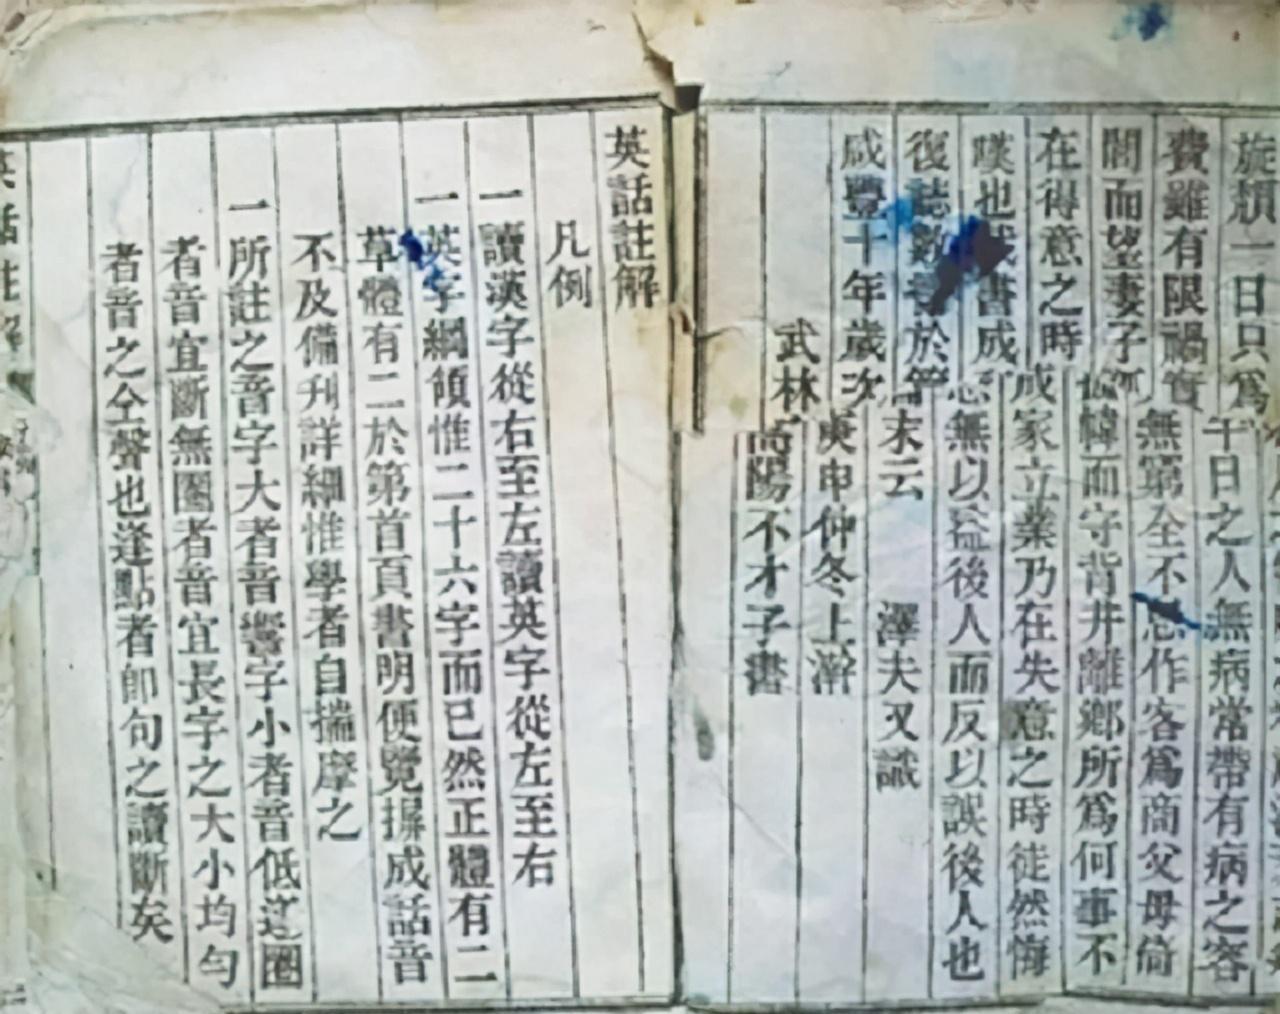 旋類一日只爲千日之人無病常帶有病之容
費雖有限禍實無窮全不思作客爲商父母倚
閭而望妻子 而守背井離鄉所爲何事不
在得意之時成家立業乃在失意之時徒然悔
嘆也 書成恐無以益後人而反以誤後人也
復誌數 於篇末云 澤夫又識
咸豐十年歲次庚申仲冬上澣
武林 陽不才子書
英話註解
凡例
一讀漢字從右至左讀英字從左至右
一英字綱領惟二十六字而已然正體有二
草體有二於第首頁書明便覽摒成話音
不及備刊詳細惟學者自揣摩之
一所註之音字大者音響字小者音低迄圈
者音宜斷無圈者音宜長字之大小均勻
者音之仝聲也逢點者即句之讀斷矣
英話註解